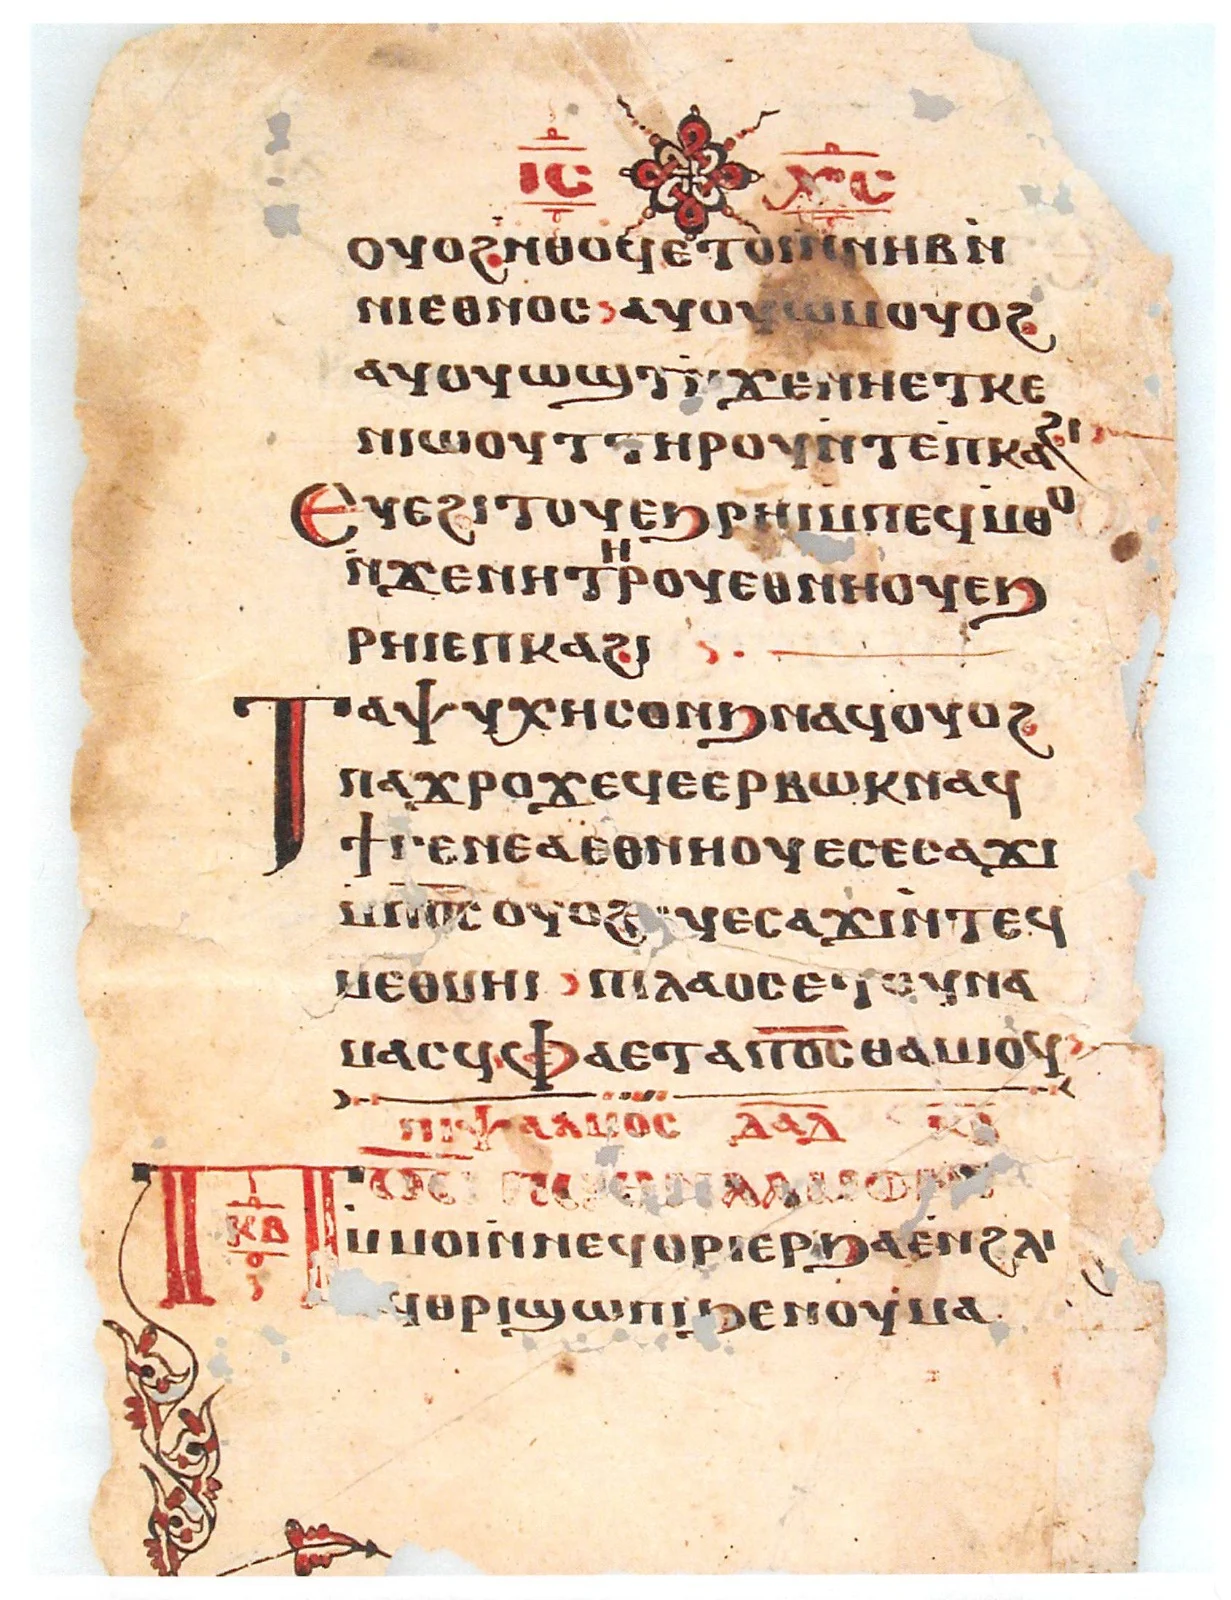 ⲒⲤ ⲬⲤ
ⲟⲩⲟϩⲛⲑⲟϥⲉⲧⲟⲓⲛ̀ⲛⲏⲃⲛ̀
ⲛⲓⲉⲑⲛⲟⲥ ⲁⲩⲟⲩⲱⲙⲟⲩⲟϩ
ⲁⲩⲟⲩⲱϣⲧ ϫⲉⲛⲏⲉⲧⲕⲉ
ⲛⲓⲱⲟⲩⲧⲧⲏⲣⲟⲩⲛ̀ⲧⲉⲡⲕⲁϩⲓ
Ⲉⲩⲉϩⲓⲧⲟⲩⲉϧⲣⲏⲓⲙⲡⲉϥⲙ̀ⲑⲟ
ⲛ̀ϫⲉⲛⲏⲧⲏⲣⲟⲩⲉⲑⲛⲏⲟⲩⲉϧ
ⲣⲏⲓⲉⲡⲕⲁϩⲓ
Ⲧⲁⲯⲩⲭⲏⲥⲟⲛϧⲛⲁϥⲟⲩⲟϩ
ⲡⲁϫⲣⲟϫⲉϥⲉⲉⲣⲃⲱⲕⲛⲁϥ
ϯⲅⲉⲛⲉⲁⲉⲑⲛⲏⲟⲩⲉⲥⲉⲥⲁϫⲓ
ⲙⲡⲟ̅ⲥ̅ ⲟⲩⲟϩ ⲩⲉⲥⲁϫⲓⲛ̀ⲧⲉϥ
ⲙⲉⲑⲙⲏⲓ ⲡⲓⲗⲁⲟⲥⲉⲧⲟⲩⲛⲁ
ⲙⲁⲥϥ ⲫⲁⲉⲧⲁⲡⲟ̅ⲥ̅ⲑⲁⲙⲓⲟϥ
ⲡⲓⲯⲁⲗⲙⲟⲥ ⲇⲁ̅ⲇ̅
Ⲡ ⲟ̅ⲥ̅
ⲕⲃ
ⲙ̀ⲙⲟⲓⲛ̀ⲛⲉϥⲑⲣⲓⲉⲣϧⲁⲉⲛ̀ϩⲗⲓ
ϥⲑⲣⲓϣⲱⲡⲓϧⲉⲛⲟⲩⲙⲁ